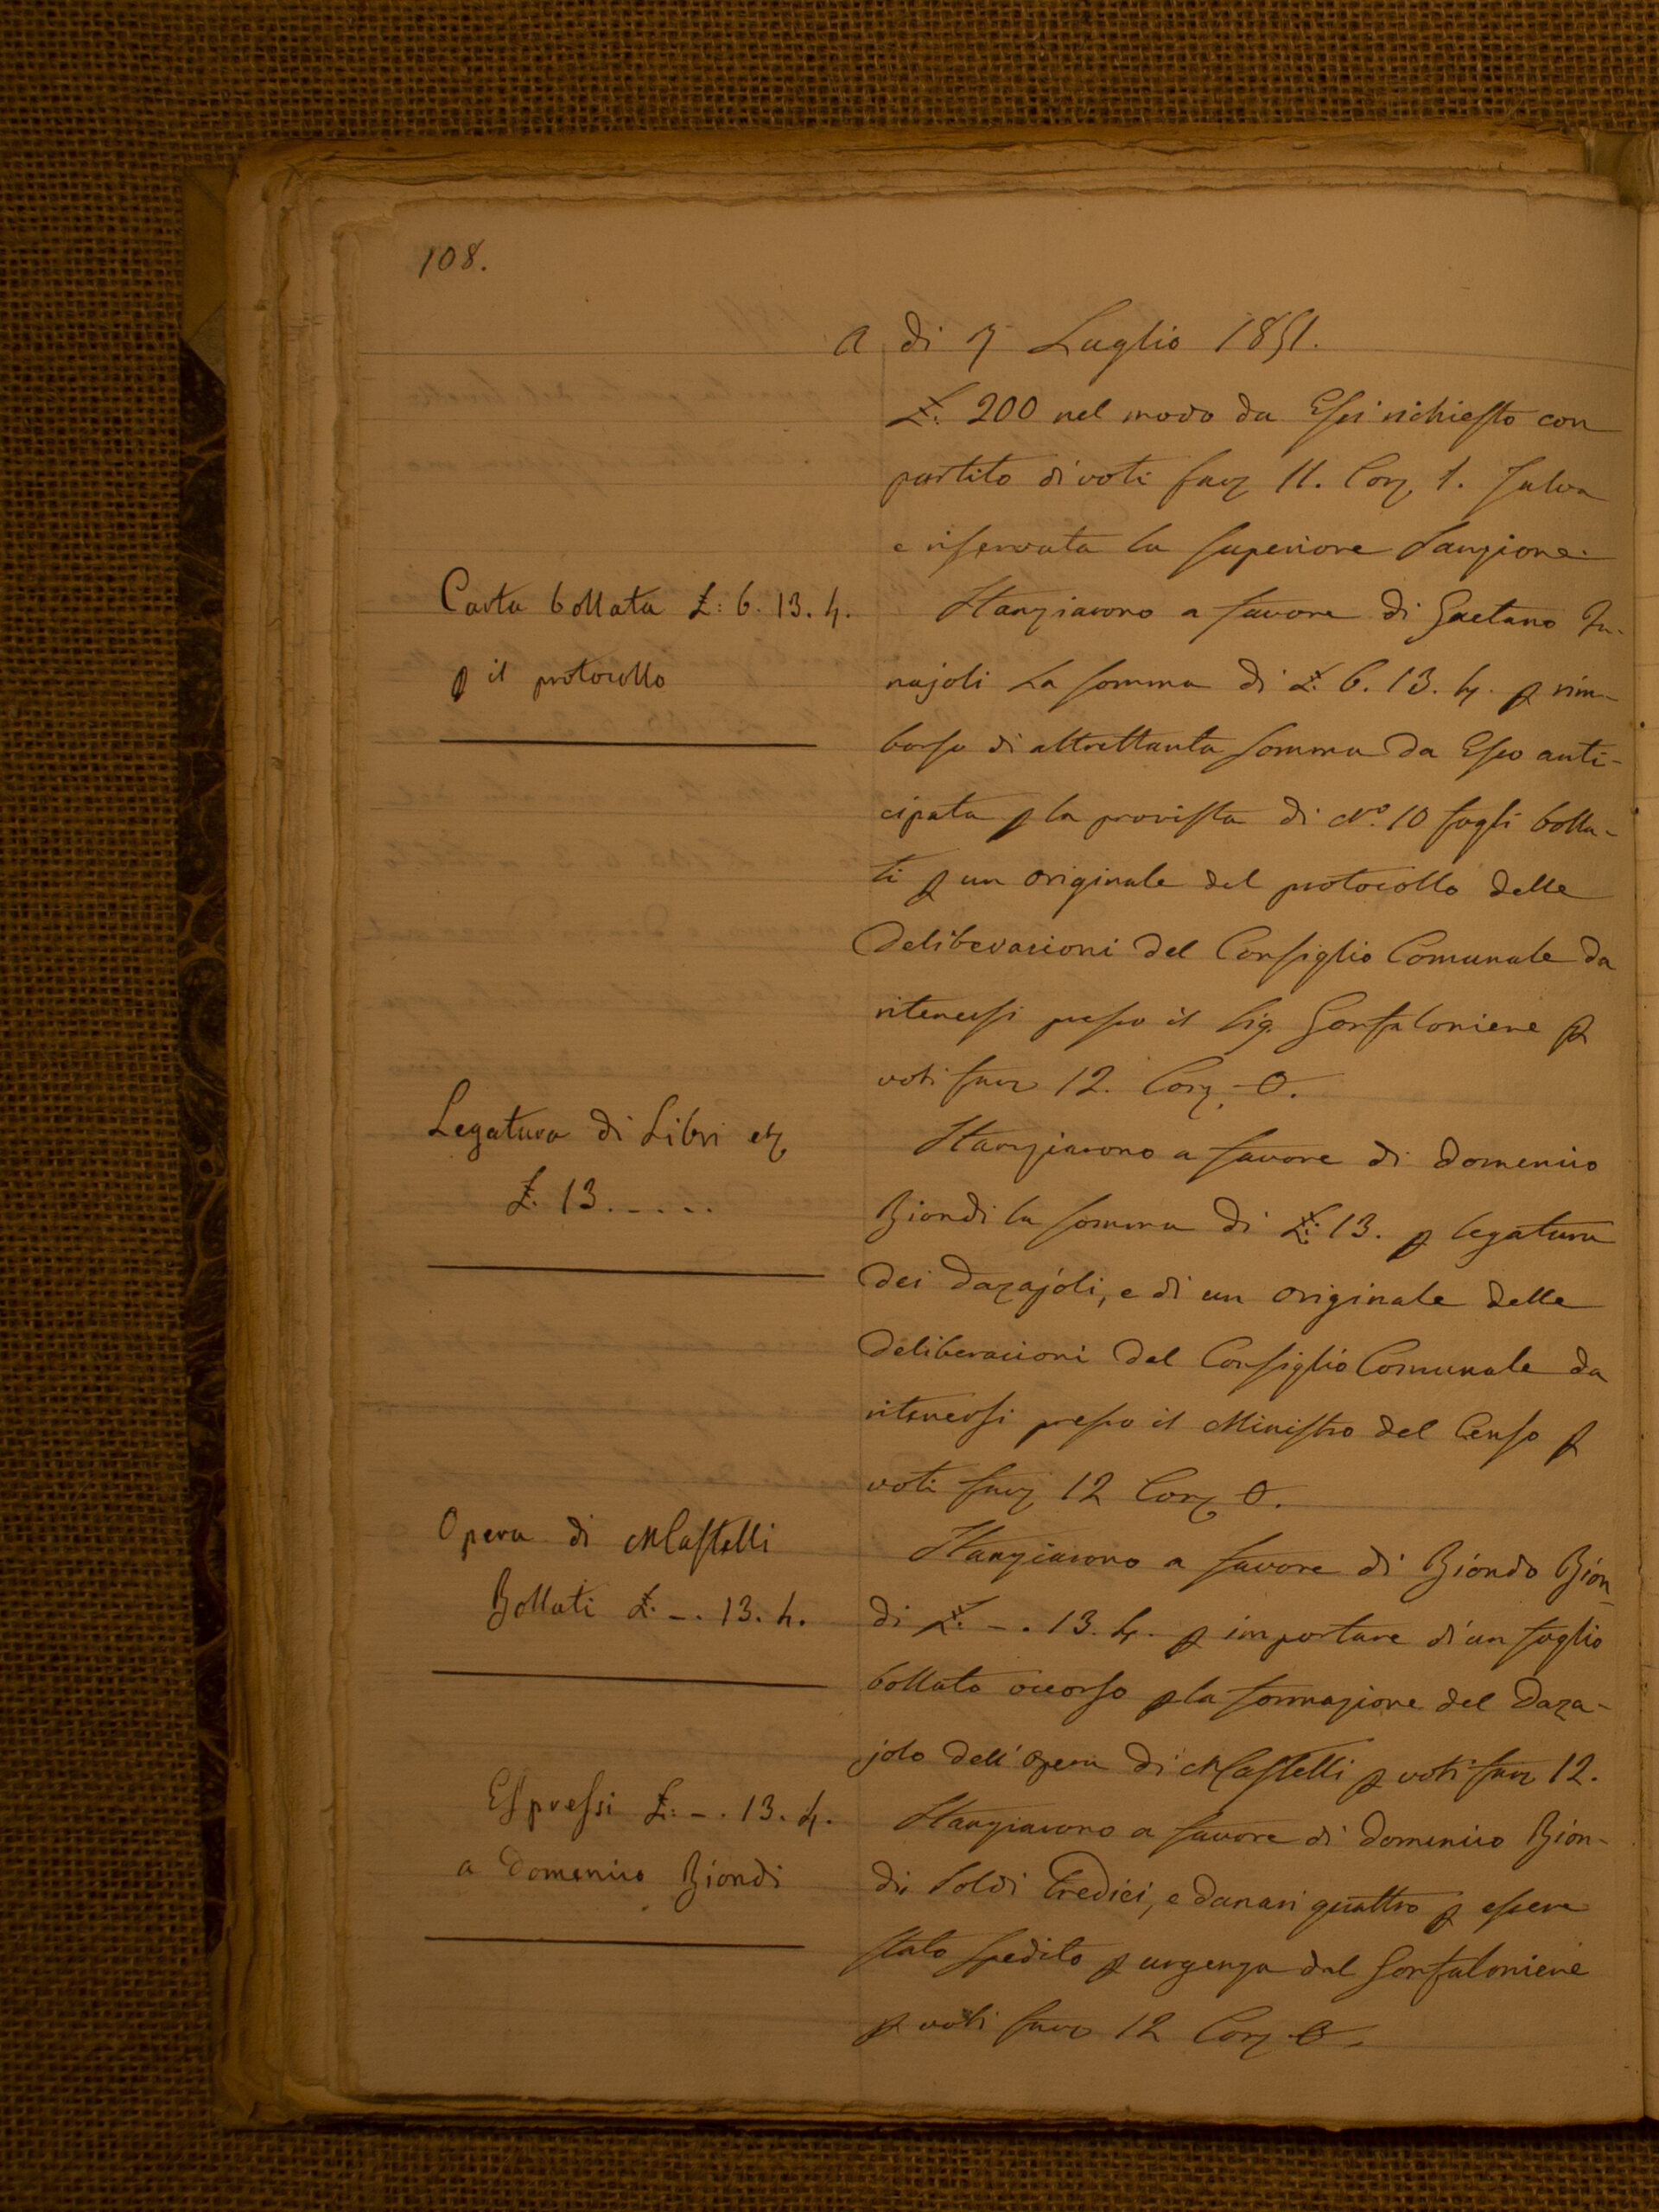 108.
a di 7 Luglio 1851.
£: 200 nel modo da Essi richiesto con
partito di voti favz 11. Conz 1. salva
e riservata la superiore Sanzione.
Carta bollata £: 6. 13. 4.
p il protocollo
Stanziarono a favore di Gaetano Fu-
najoli La somma di £: 6. 13. 4. p rim-
borso di altrettanta somma da Esso anti-
cipata p la provista di N.º 10 fogli bolla-
ti p un originale del protocollo delle
Deliberazioni del Consiglio Comunale da
ritenersi presso il Sig. Gonfaloniere p
voti favz 12. Conz O.
Legatura di Libri etz
£. 13. - - . .
Stanziarono a favore di Domenico
Biondi la somma di £: 13. p legatura
dei Dazajoli, e di un originale delle
Deliberazioni del Consiglio Comunale da
ritenersi presso il Ministro del Censo p
voti favz 12 Conz O.
Opera di Mastelli
Bollati £. -. 13. 4.
Stanziarono a favore di Biondo Bion-
di £: -. 13. 4. p importare di un foglio
bollato occorso p la formazione del Daza-
jolo dell'Opera di Mastelli p voti favz 12.
Espressi £: -. 13. 4.
a Domenico Biondi
Stanziarono a favore di Domenico Bion-
di, Soldi Tredici, e danari quattro p essere
stato spedito p urgenza dal Gonfaloniere
p voti favz 12 Conz O.